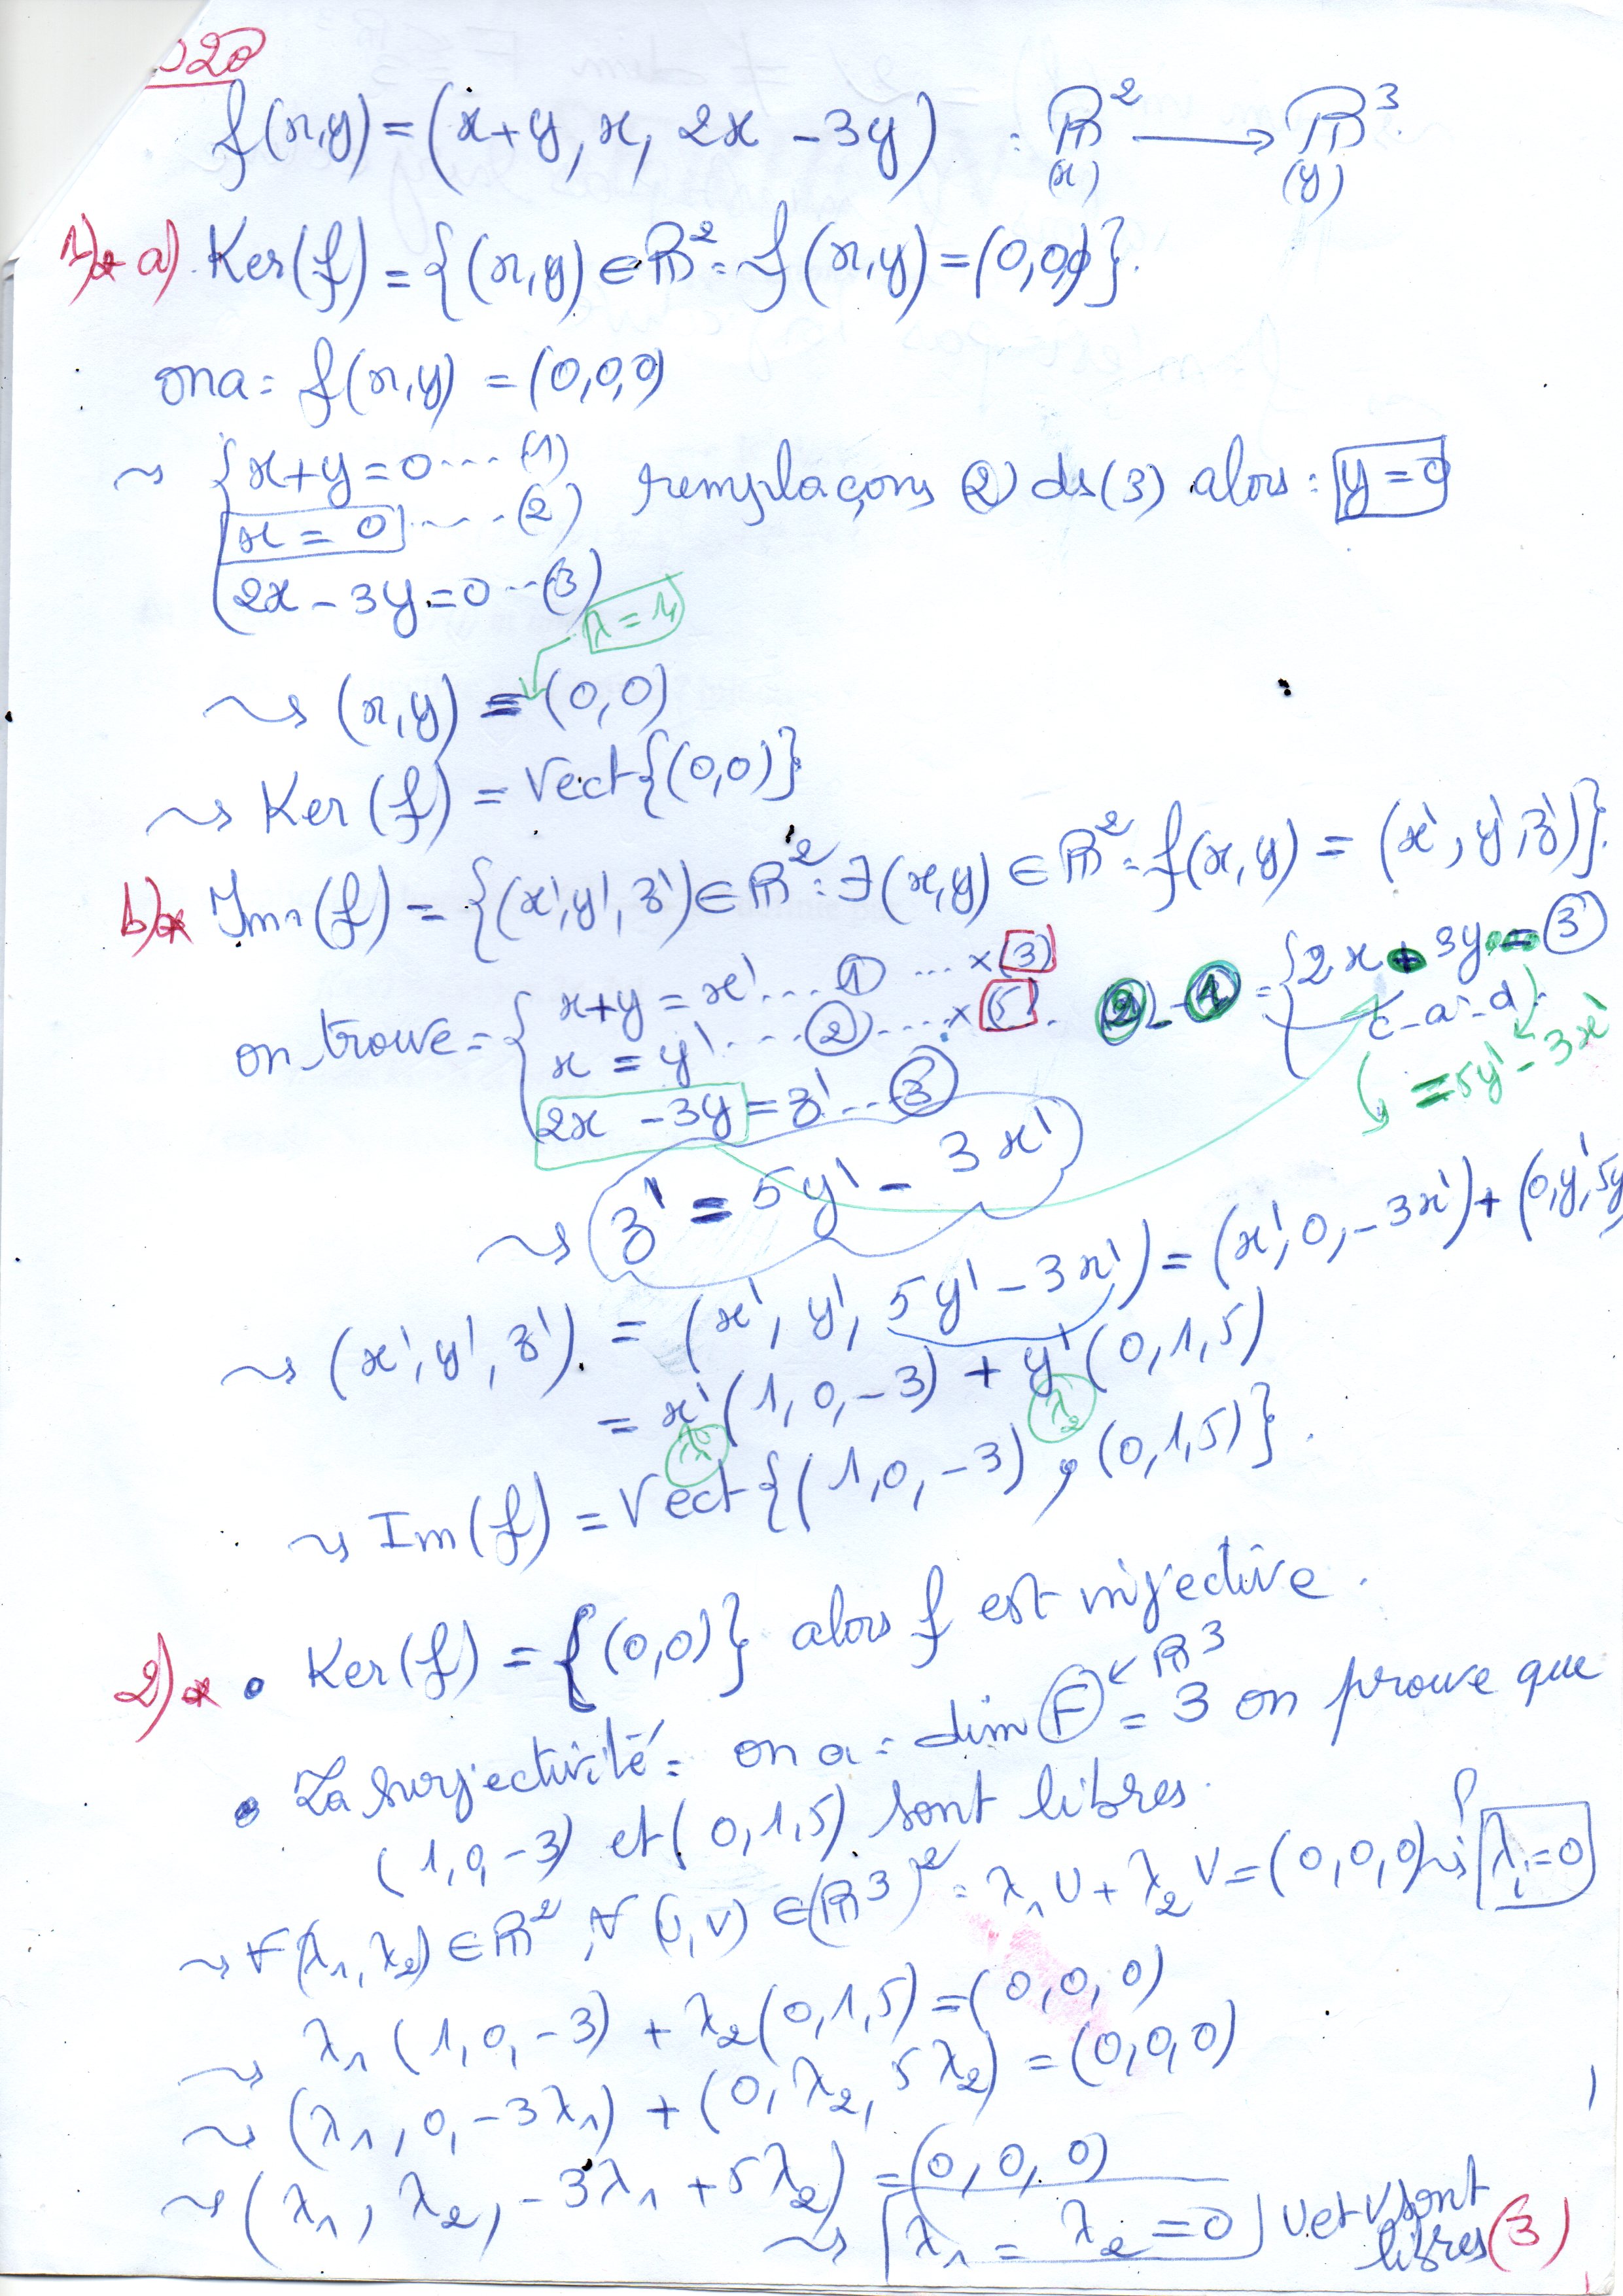 020
f(x,y) = (x+y, x, 2x - 3y) : ℝ² ⟶ ℝ³.
(x) (y)
1)* a) Ker(f) = {(x,y) ∈ ℝ² : f(x,y) = (0,0,0)}.
on a : f(x,y) = (0,0,0)
↝ { x+y = 0 ---- (1)
x = 0 ---- (2) remplaçons (2) ds (3) alors : y = 0
2x - 3y = 0 -- (3)
λ = 1
↝ (x,y) = (0,0)
↝ Ker(f) = Vect{(0,0)}
b)* Im(f) = {(x',y',z') ∈ ℝ² : ∃(x,y) ∈ ℝ² : f(x,y) = (x',y',z')}.
on trouve = { x+y = x' ... ① ... ×(3)
x = y' .... ② .... ×(5). ② - ① = { 2x + 3y = ③
2x - 3y = z' ... ③ c-a-d
= 5y' - 3x'
↝ z' = 5y' - 3x'
↝ (x', y', z') = (x', y', 5y' - 3x') = (x', 0, -3x') + (0, y', 5y
= x'(1, 0, -3) + y'(0, 1, 5)
λ₁ λ₂
↝ Im(f) = Vect{(1, 0, -3), (0, 1, 5)}.
2)* • Ker(f) = {(0,0)} alors f est injective.
• La surjectivité : on a : dim F = 3 on prouve que
← ℝ³
(1, 0, -3) et (0, 1, 5) sont libres.
↝ ∀(λ₁, λ₂) ∈ ℝ², ∀(U, V) ∈ (ℝ³)² : λ₁U + λ₂V = (0,0,0) ↝ λᵢ = 0
?
↝ λ₁(1, 0, -3) + λ₂(0, 1, 5) = (0, 0, 0)
↝ (λ₁, 0, -3λ₁) + (0, λ₂, 5λ₂) = (0, 0, 0)
↝ (λ₁, λ₂, -3λ₁ + 5λ₂) = (0, 0, 0)
↝ λ₁ = λ₂ = 0 U et V sont
libres (3)